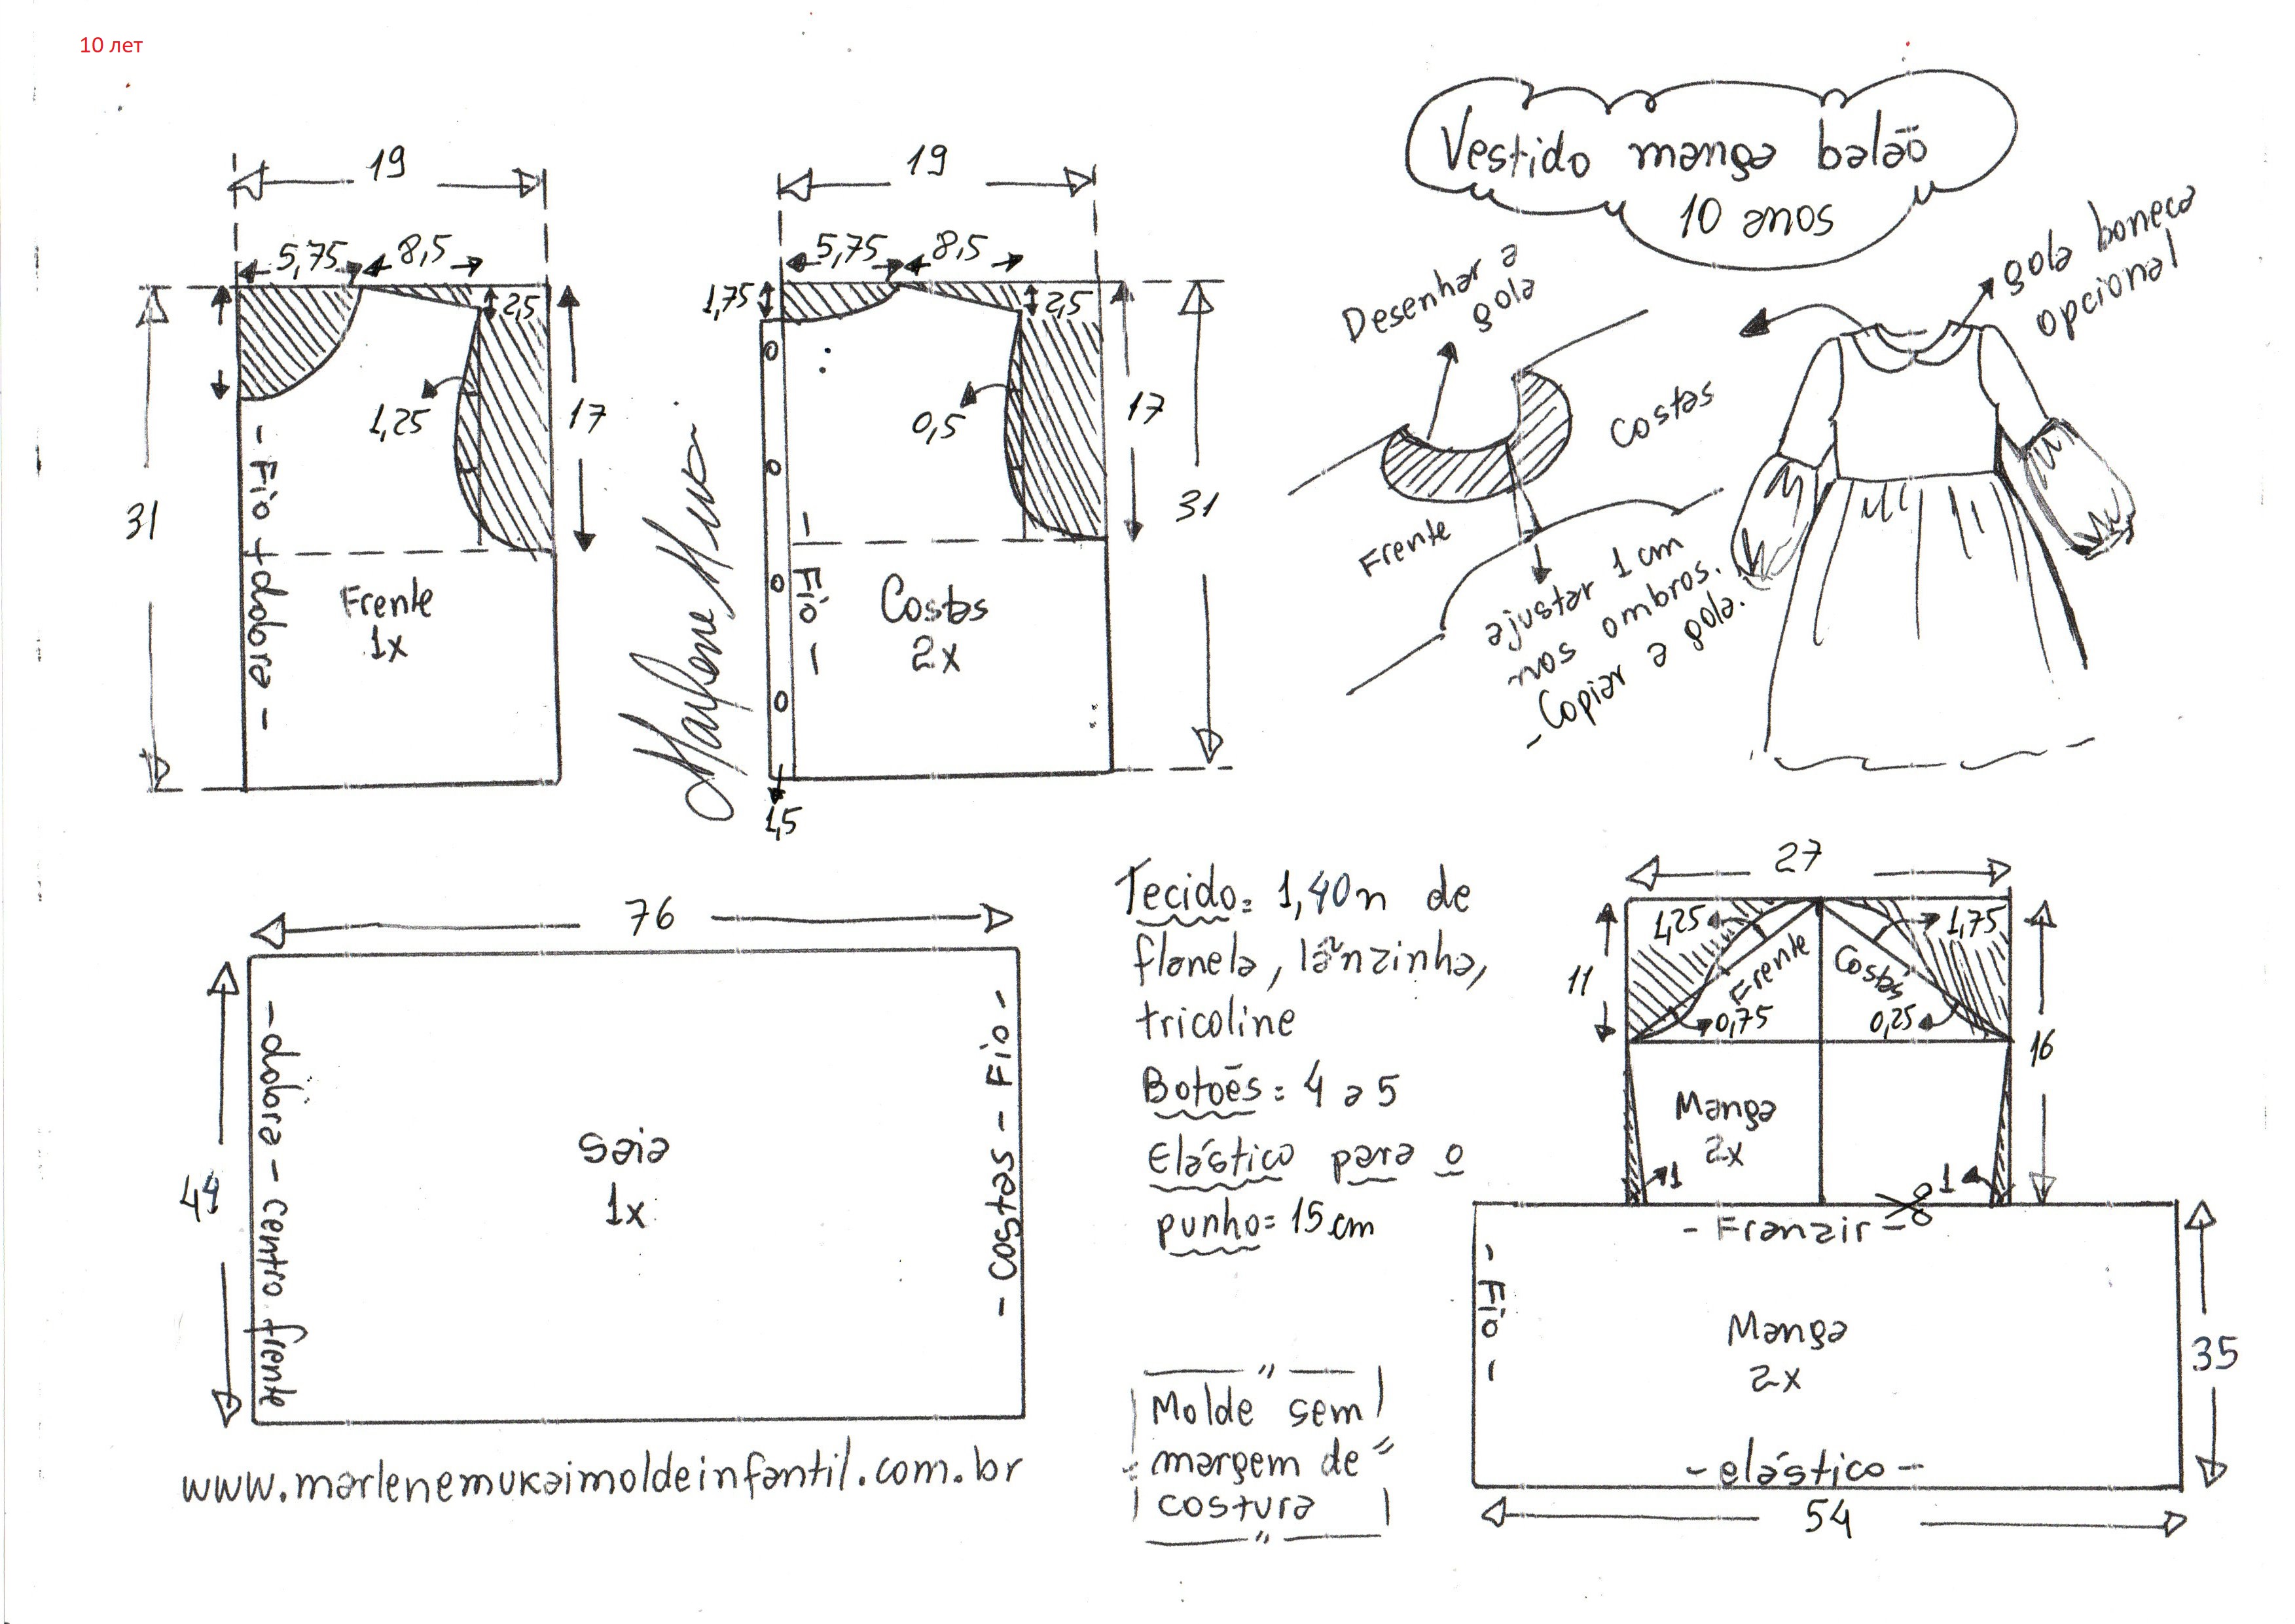 10 лет
Vestido manga balão
10 anos
19
5,75
8,5
2,5
1,25
17
31
- Fio + dobra -
Frente
1x
19
5,75
8,5
1,75
2,5
0,5
17
31
- Fio -
Costas
2x
1,5
Desenhar a
gola
Costas
Frente
ajustar 1cm
nos ombros.
- Copiar a gola.
gola boneca
opcional
76
- dobra - centro frente
Saia
1x
- costas - Fio -
www.marlenemukaimoldeinfantil.com.br
Tecido= 1,40m de
flanela, lãnzinha,
tricoline
Botões= 4 a 5
Elástico para o
punho= 15cm
Molde sem
margem de
costura
27
1,25
1,75
11
Frente
Costas
0,75
0,25
16
Manga
2x
1
1
- Franzir -
- Fio -
Manga
2x
35
- elástico -
54